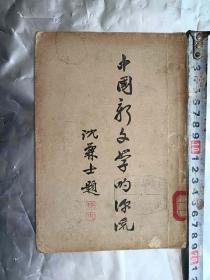 中国新文学的源流
沈兼士題